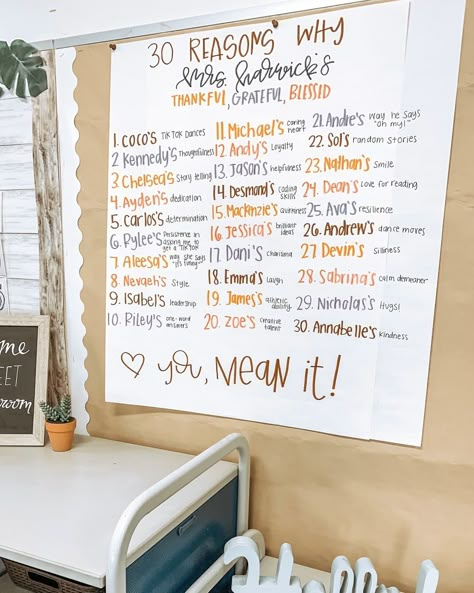 30 REASONS WHY
Mrs. Hardwick's
THANKFUL, GRATEFUL, BLESSED
1. COCO'S TIK TOK DANCES
2 Kennedy's Thoughtfulness
3 Chelsea's Story telling
4. Ayden's dedication
5. Carlos's determination
6. Rylee's Persistence in asking me to get a TIKTOK
7. Aleesa's way she says "it's fining"
8. Nevaeh's Style
9. Isabel's leadership
10. Riley's one-word answers
11. Michael's caring heart
12. Andy's Loyalty
13. Jason's helpfulness
14. Desmond's coding skills
15. Mackenzie's quirkiness
16. Jessica's brilliant ideas
17. Dani's Charisma
18. Emma's Laugh
19. James's athletic ability
20. Zoe's Creative talent
21. Andre's way He says "oh my!"
22. Sol's random stories
23. Nathan's smile
24. Dean's Love for reading
25. Ava's resilience
26. Andrew's dance moves
27 Devin's Silliness
28. Sabrina's calm demeanor
29. Nicholas's Hugs!
30. Annabelle's kindness
♡ you, Mean it!
me
EET
room